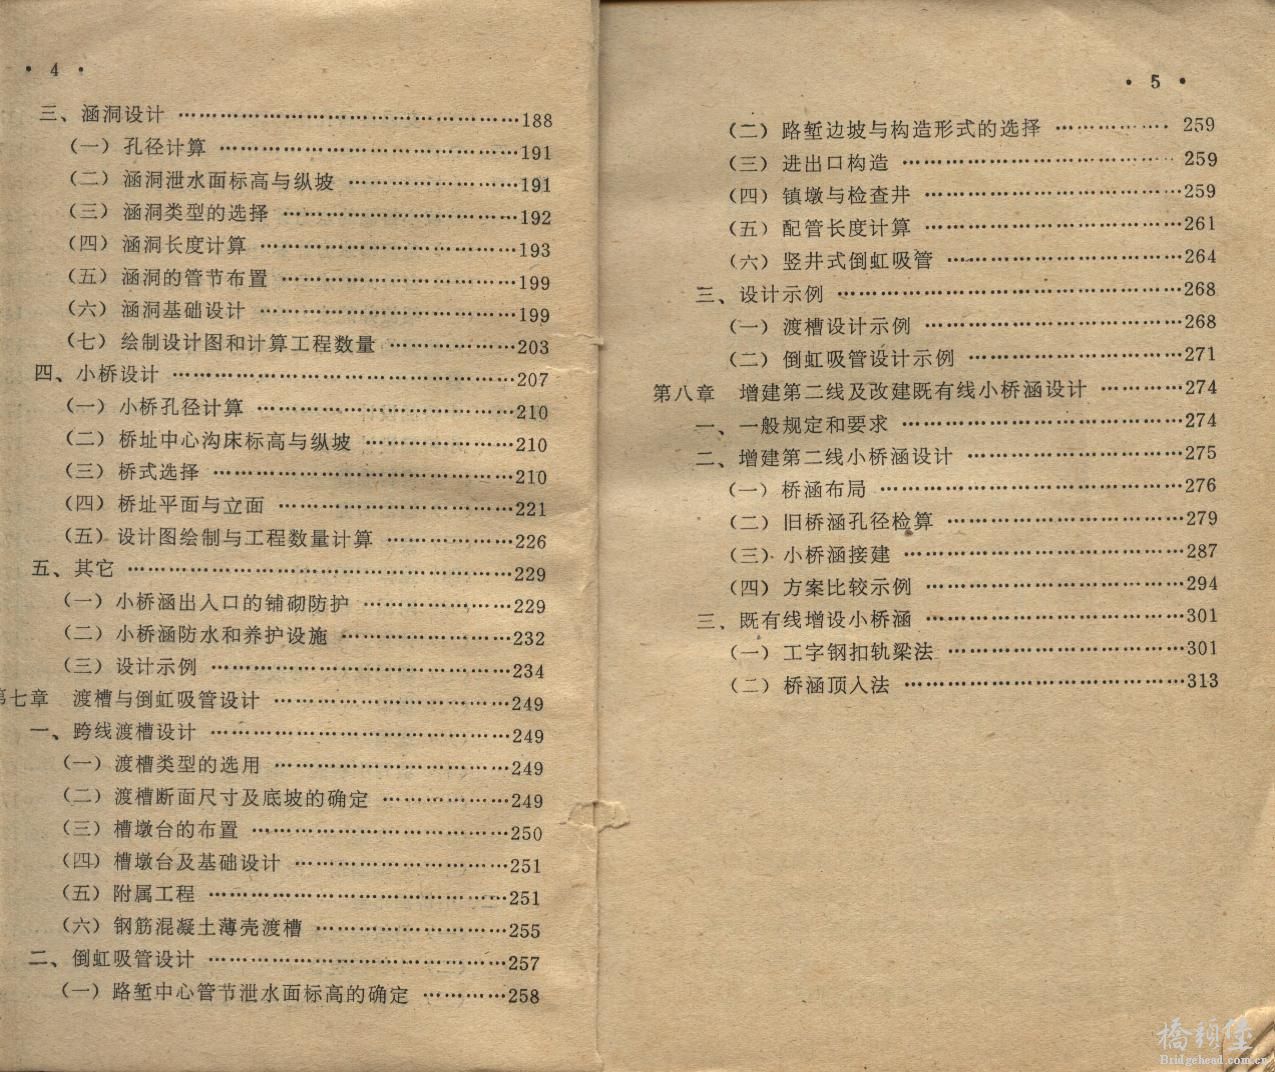 • 4 •
三、涵洞设计 ……………………………………188
（一）孔径计算 …………………………………191
（二）涵洞泄水面标高与纵坡 …………………191
（三）涵洞类型的选择 …………………………192
（四）涵洞长度计算 ……………………………193
（五）涵洞的管节布置 …………………………199
（六）涵洞基础设计 ……………………………199
（七）绘制设计图和计算工程数量 ……………203
四、小桥设计 ……………………………………207
（一）小桥孔径计算 ……………………………210
（二）桥址中心沟床标高与纵坡 ………………210
（三）桥式选择 …………………………………210
（四）桥址平面与立面 …………………………221
（五）设计图绘制与工程数量计算 ……………226
五、其它 …………………………………………229
（一）小桥涵出入口的铺砌防护 ………………229
（二）小桥涵防水和养护设施 …………………232
（三）设计示例 …………………………………234
第七章 渡槽与倒虹吸管设计 ……………………249
一、跨线渡槽设计 ………………………………249
（一）渡槽类型的选用 …………………………249
（二）渡槽断面尺寸及底坡的确定 ……………249
（三）槽墩台的布置 ……………………………250
（四）槽墩台及基础设计 ………………………251
（五）附属工程 …………………………………251
（六）钢筋混凝土薄壳渡槽 ……………………255
二、倒虹吸管设计 ………………………………257
（一）路堑中心管节泄水面标高的确定 ………258
• 5 •
（二）路堑边坡与构造形式的选择 ……………259
（三）进出口构造 ………………………………259
（四）镇墩与检查井 ……………………………259
（五）配管长度计算 ……………………………261
（六）竖井式倒虹吸管 …………………………264
三、设计示例 ……………………………………268
（一）渡槽设计示例 ……………………………268
（二）倒虹吸管设计示例 ………………………271
第八章 增建第二线及改建既有线小桥涵设计 …………274
一、一般规定和要求 ……………………………274
二、增建第二线小桥涵设计 ……………………275
（一）桥涵布局 …………………………………276
（二）旧桥涵孔径检算 …………………………279
（三）小桥涵接建 ………………………………287
（四）方案比较示例 ……………………………294
三、既有线增设小桥涵 …………………………301
（一）工字钢扣轨梁法 …………………………301
（二）桥涵顶入法 ………………………………313
橋頭堡
Bridgehead.com.cn